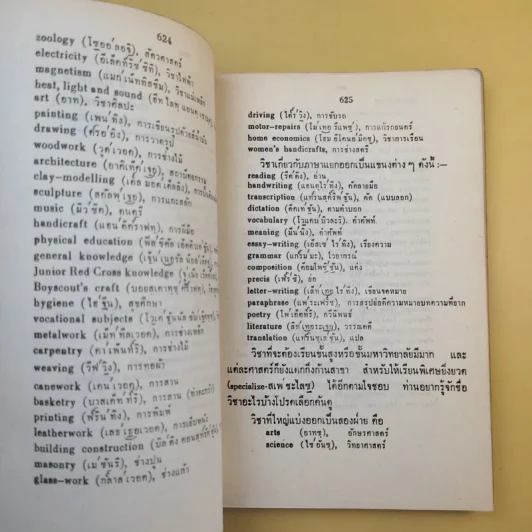 624
zoology (ไซออ'ลอจิ), สัตวศาสตร์
electricity (อีเล็คทริ'ซิที), วิชาไฟฟ้า
magnetism (แมก'เน็ททิสซึม), วิชาแม่เหล็ก
heat, light and sound
art (อาท), วิชาศิลปะ
painting (เพน'ทิง), การเขียนรูปด้วยสีน้ำมัน
drawing (ดรอ'อิง), การวาดรูป
woodwork (วุ'ดเวอค), การช่างไม้
architecture
clay-modelling
sculpture (สคัลพ'เจอ), การแกะสลัก
music (มิว'ซิค), ดนตรี
handicraft (แฮน'ดิคราฟท), การฝีมือ
physical education
general knowledge
Junior Red Cross knowledge
Boyscout's craft
hygiene (ไฮ'ยีน), สุขศึกษา
vocational subjects
metalwork (เม็ท'ทัลเวอค), การช่างเหล็ก
carpentry (คา'เพ็นทรี), การช่างไม้
weaving (รีฟ'วิง), การทอผ้า
canework (เคน'เวอค), การสาน
basketry (บาสเก็ททรี), การสาน
printing (พริน'ทิง), การพิมพ์
leatherwork
building construction
masonry (เม'ซันรี), ช่างปูน
glass-work (กล๊าส'เวอค), ช่างแก้ว
625
driving (ไดร๊'วิง), การขับรถ
motor-repairs (โม'เทอ รีแพซ'), การแก้รถยนตร์
home economics (โฮม อีโคนอ'มิคซ), วิชาการเรือน
women's handicrafts, การช่างสตรี
วิชาเกี่ยวกับภาษาแยกออกเป็นแขนงต่าง ๆ ดังนี้ :—
reading (รีด'ดิง), อ่าน
handwriting (แฮนดไร'ทิง), คัดลายมือ
transcription (แทรันสคริพ'ชัน), คัด (แบบลอก)
dictation (ดิคเท'ชัน), ตามคำบอก
vocabulary (โวแคบ'บิวละริ), คำศัพท์
meaning (มีน'นิง), คำศัพท์
essay-writing (เอ๊สเซ' ไร'ทิง), เรียงความ
grammar (แกร๊ม'มะ), ไวยากรณ์
composition (ค็อมโพซิ'ชัน), แต่ง
precis (เพร๊'ซี), ย่อ
letter-writing (เล็ท'เทอ ไร'ทิง), เรียนจดหมาย
paraphrase (แพ'ระเฟร๊ซ), การสรุปย่อตีความหมายบทความที่ยาก
poetry (โพ'เอ็ทที่ริ), กวีนิพนธ์
literature (ลิท'เทอระเจอ), วรรณคดี
translation (แทร๊นซเล'ชัน), แปล
วิชาที่จะต้องเรียนขั้นสูงหรือขั้นมหาวิทยาลัยมีมาก และ
แต่ละศาสตร์ก็ยังแตกกิ่งก้านสาขา สำหรับให้เรียนพิเศษยิ่งยวด
(specialize-สเพ'ชะไลซ) ได้อีกตามใจชอบ ท่านอยากรู้จักชื่อ
วิชาอะไรบ้างโปรดเลือกค้นดู
วิชาที่ใหญ่แบ่งออกเป็นสองฝ่าย คือ
arts (อาทซ), อักษรศาสตร์
science (ไซ'อันซ), วิทยาศาสตร์